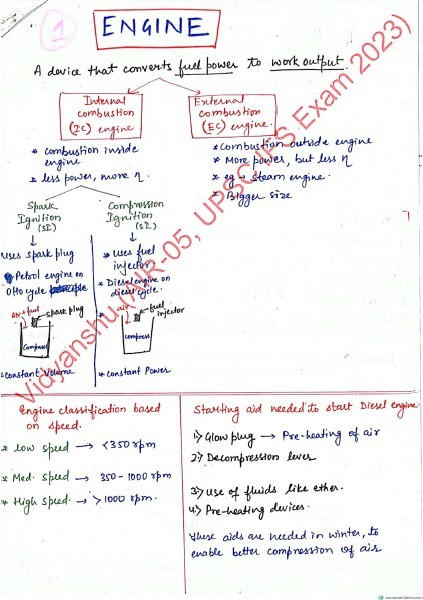 1
ENGINE
A device that converts fuel power to work output.
Internal combustion (IC) engine
External combustion (EC) engine.
* combustion inside engine
* less power, more η
* combustion outside engine
* More power, but less η
* eg → Steam engine.
* Bigger size
Spark Ignition (SI)
Compression Ignition (SI)
Uses spark plug
* Petrol engine on Otto cycle
Air + fuel
spark plug
Compress
* constant volume
* Uses fuel injector
* Diesel engine on diesel cycle.
air
fuel injector
compress
* constant Power
Vidyanshu (AIR-05, UPSC IFS Exam 2023)
Engine classification based on speed.
* low speed → <350 rpm
* Med. speed → 350-1000 rpm
* High speed. → >1000 rpm.
Starting aid needed to start Diesel engine
1) Glow plug → Pre-heating of air
2) Decompression lever
3) Use of fluids like ether.
4) Pre-heating devices.
These aids are needed in winter, to
enable better compression of air